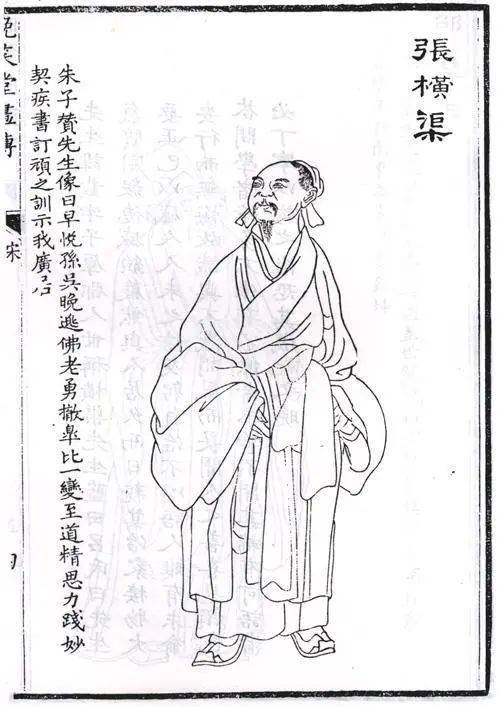 張橫渠
朱子贊先生像曰早悅孫吳晚逃佛老勇撤臯比一變至道精思力踐妙
契疾書訂頑之訓示我廣居
晚笑堂畫傳
宋